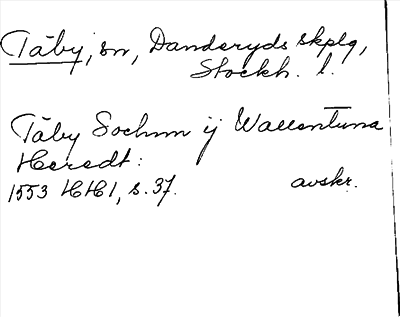 Täby, sn, Danderyds skplg,
Stockh. l.
Täby Sochnn ij Wallentuna
Heredt:
1553 HH1, s. 37. avskr.